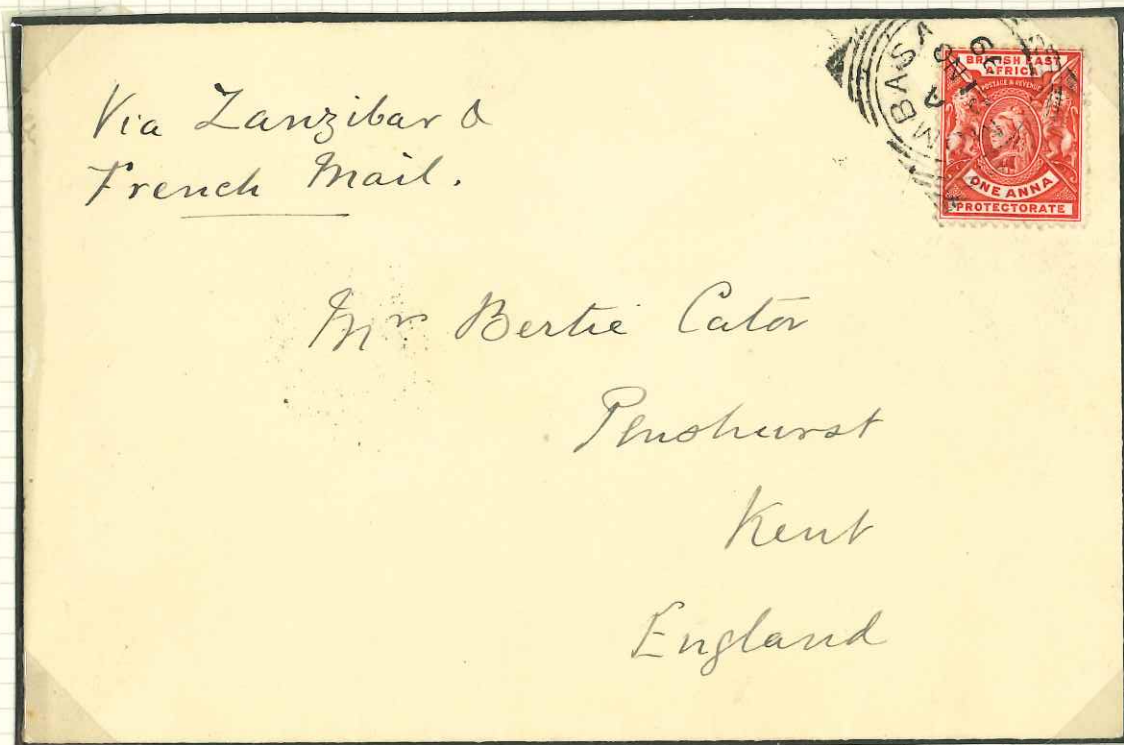 Via Zanzibar &
French Mail.
MOMBASA
BRITISH EAST
AFRICA
POSTAGE & REVENUE
ONE ANNA
PROTECTORATE
Mr Bertie Cator
Penshurst
Kent
England